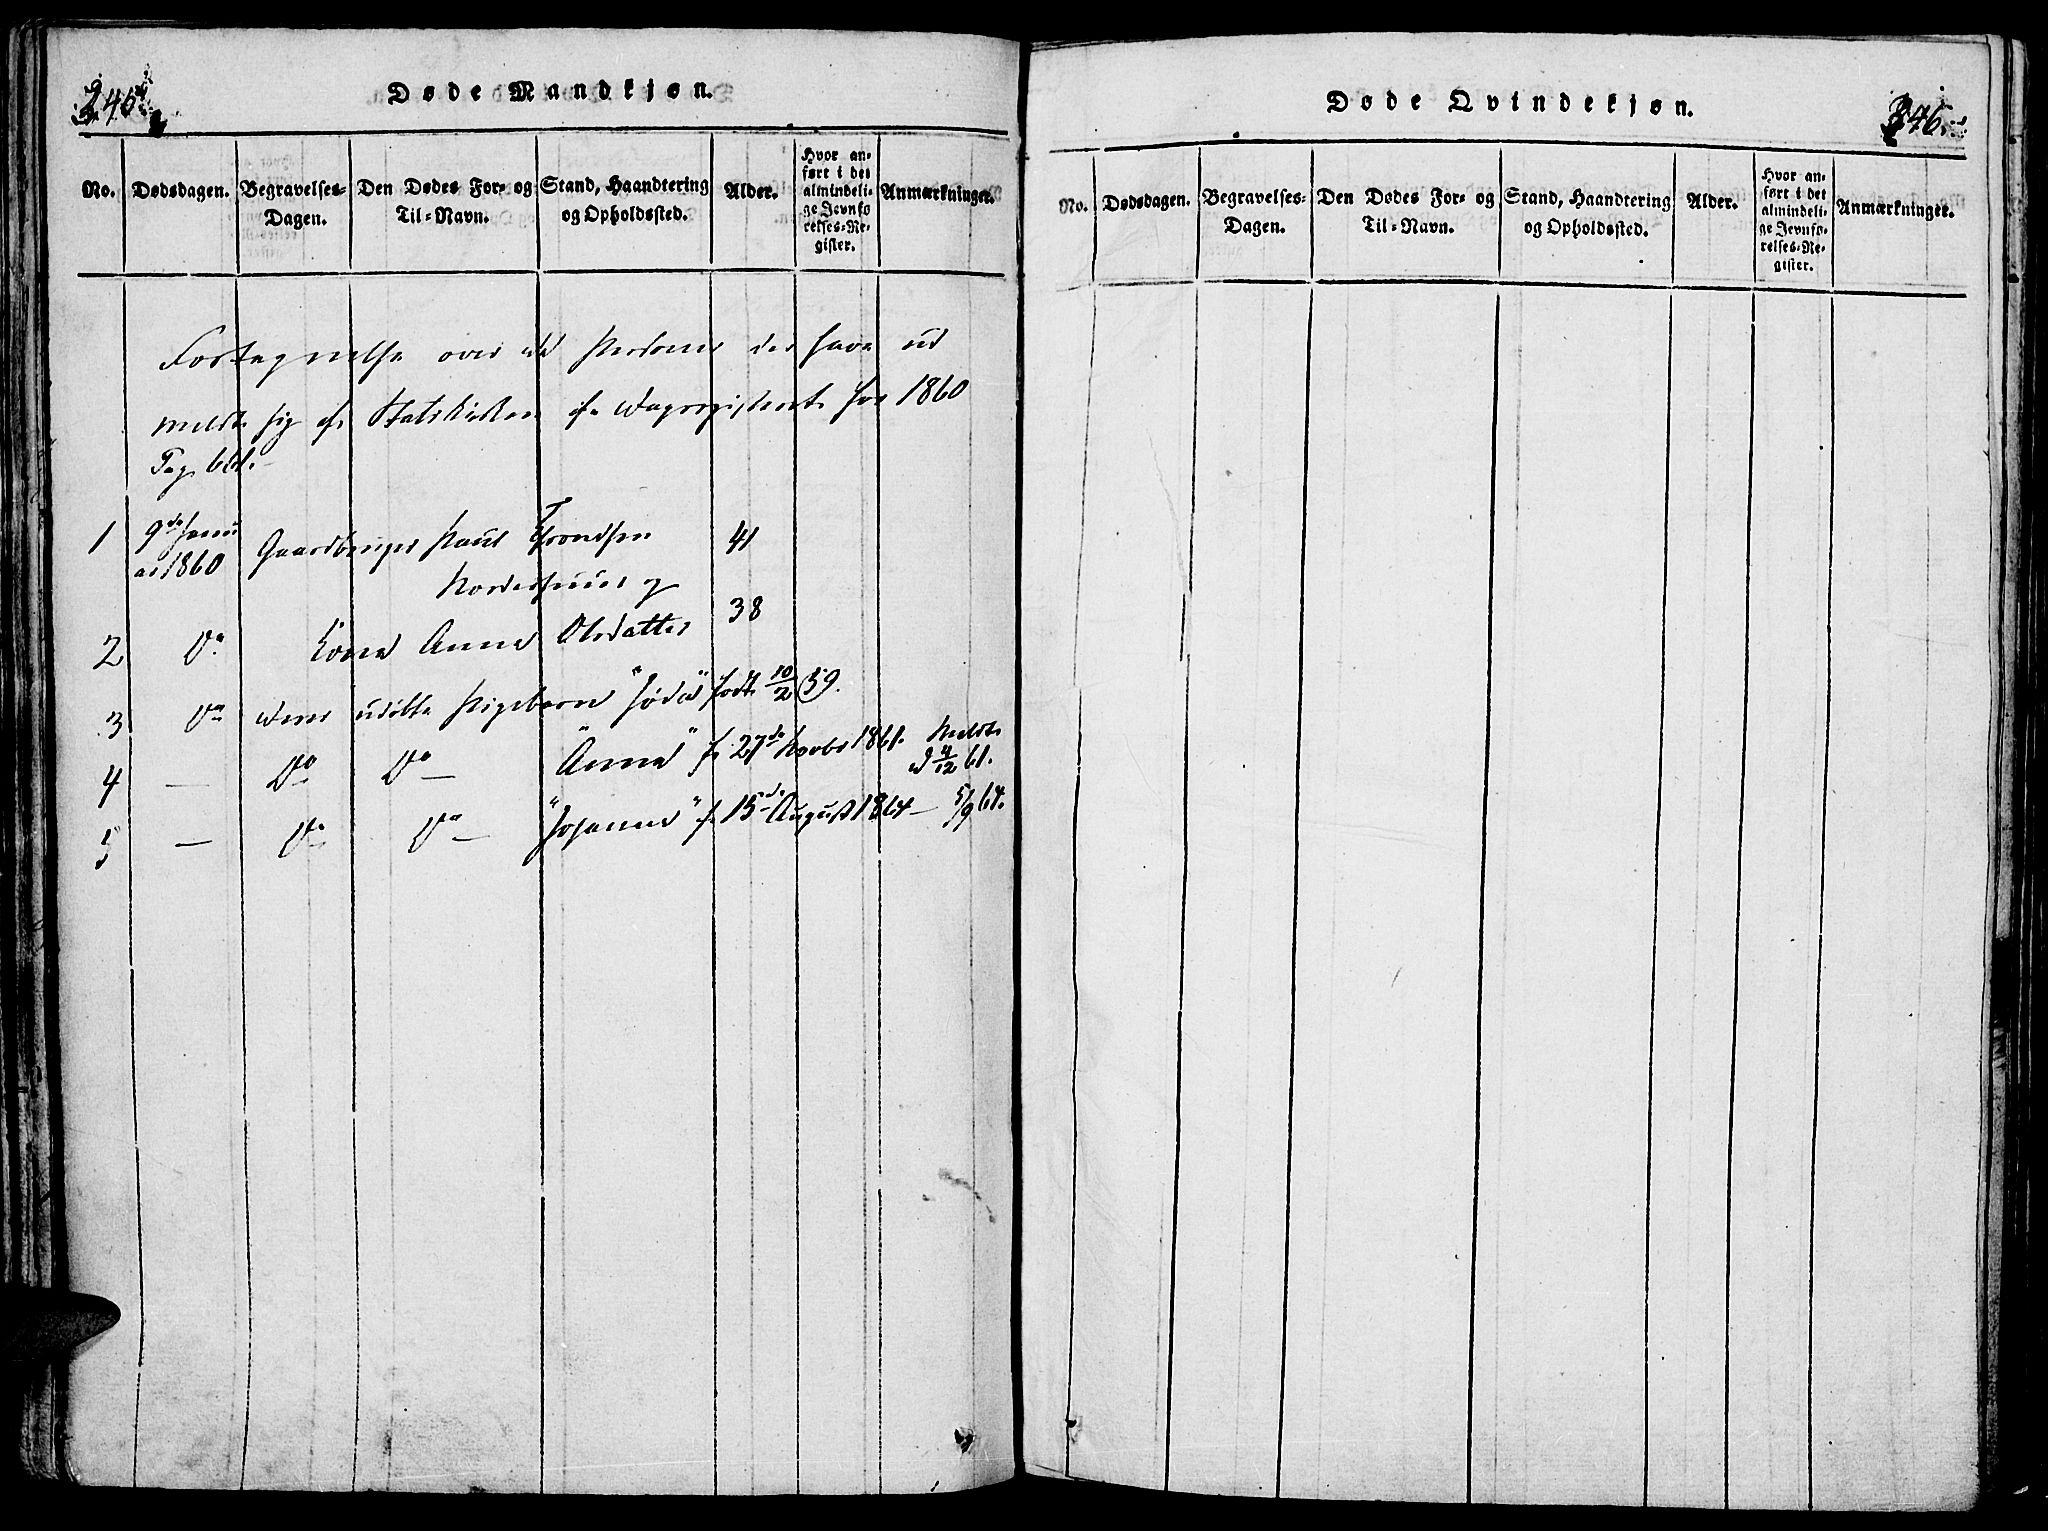 245
Døde Mandkjøn.
No.
Dødsdagen.
Begravelses-
Dagen.
Den Dødes For- og
Til-Navn.
Stand, Haandtering
og Opholdssted.
Alder.
Hvor an-
ført i det
almindeli-
ge Jevnfø
relses-Re-
gister.
Anmærkninger.
Fortegnelse over de Personer der have ud
meldt sig af Statskirken cfr Dagregisteret for 1860
Pag
1 9de Janu Gaardbruger Paul Trondsen 41
ar 1860
Nordeshuus og
2 Do Kone Anne Olsdatter 38
3 Do deres udöbte Pigebarn "Söda" född 10/2 59.
4 — Do Do — "Anna" f. 27de Novbr 1861. Meldt
d 4/12 61.
5 — Do Do — "Johanna" f. 15de August 1864 — 5/9 64.
Døde Qvindekjøn.
246
No.
Dødsdagen.
Begravelses-
Dagen.
Den Dødes For- og
Til-Navn.
Stand, Haandtering
og Opholdssted.
Alder.
Hvor an-
ført i det
almindeli-
ge Jevnfø-
relses-Re-
gister.
Anmærkninger.